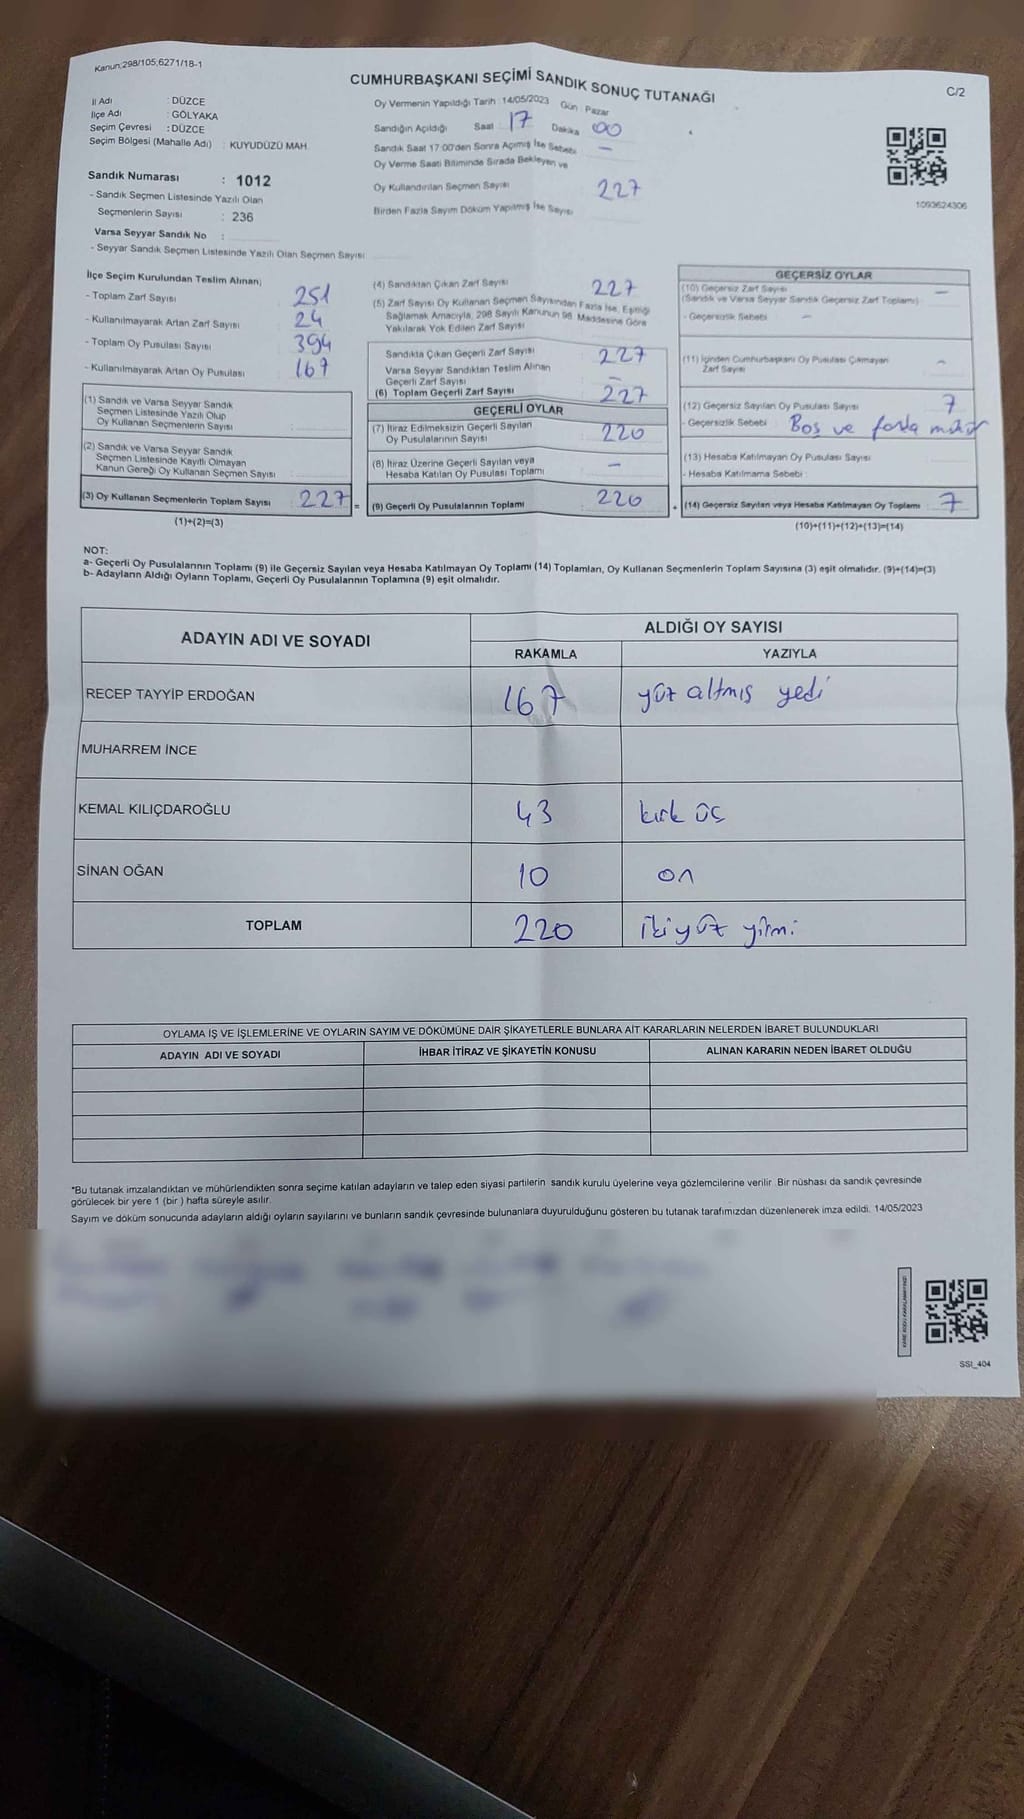 Kanun:298/105;6271/18-1
CUMHURBAŞKANI SEÇİMİ SANDIK SONUÇ TUTANAĞI
C/2
İl Adı : DÜZCE
İlçe Adı : GÖLYAKA
Seçim Çevresi : DÜZCE
Seçim Bölgesi (Mahalle Adı) : KUYUDÜZÜ MAH.
Sandık Numarası : 1012
- Sandık Seçmen Listesinde Yazılı Olan
Seçmenlerin Sayısı : 236
Varsa Seyyar Sandık No :
- Seyyar Sandık Seçmen Listesinde Yazılı Olan Seçmen Sayısı
Oy Vermenin Yapıldığı Tarih : 14/05/2023 Gün : Pazar
Sandığın Açıldığı Saat : 17 Dakika 00
Sandık Saat 17:00'den Sonra Açılmış İse Sebebi —
Oy Verme Saati Bitiminde Sırada Bekleyen ve
Oy Kullandırılan Seçmen Sayısı 227
Birden Fazla Sayım Döküm Yapılmış İse Sayısı
1093624306
İlçe Seçim Kurulundan Teslim Alınan;
- Toplam Zarf Sayısı 251
- Kullanılmayarak Artan Zarf Sayısı 24
- Toplam Oy Pusulası Sayısı 394
- Kullanılmayarak Artan Oy Pusulası 167
(1) Sandık ve Varsa Seyyar Sandık
Seçmen Listesinde Yazılı Olup
Oy Kullanan Seçmenlerin Sayısı
(2) Sandık ve Varsa Seyyar Sandık
Seçmen Listesinde Kayıtlı Olmayan
Kanun Gereği Oy Kullanan Seçmen Sayısı
(3) Oy Kullanan Seçmenlerin Toplam Sayısı 227 =
(1)+(2)=(3)
(4) Sandıktan Çıkan Zarf Sayısı 227
(5) Zarf Sayısı Oy Kullanan Seçmen Sayısından Fazla İse, Eşitliği
Sağlamak Amacıyla, 298 Sayılı Kanunun 98. Maddesine Göre
Yakılarak Yok Edilen Zarf Sayısı
Sandıkta Çıkan Geçerli Zarf Sayısı 227
Varsa Seyyar Sandıktan Teslim Alınan
Geçerli Zarf Sayısı —
(6) Toplam Geçerli Zarf Sayısı 227
GEÇERLİ OYLAR
(7) İtiraz Edilmeksizin Geçerli Sayılan
Oy Pusulalarının Sayısı 220
(8) İtiraz Üzerine Geçerli Sayılan veya
Hesaba Katılan Oy Pusulası Toplamı —
(9) Geçerli Oy Pusulalarının Toplamı 220 +
GEÇERSİZ OYLAR
(10) Geçersiz Zarf Sayısı —
(Sandık ve Varsa Seyyar Sandık Geçersiz Zarf Toplamı)
- Geçersizlik Sebebi —
(11) İçinden Cumhurbaşkanı Oy Pusulası Çıkmayan
Zarf Sayısı —
(12) Geçersiz Sayılan Oy Pusulası Sayısı 7
- Geçersizlik Sebebi Boş ve fazla mühür
(13) Hesaba Katılmayan Oy Pusulası Sayısı
- Hesaba Katılmama Sebebi :
(14) Geçersiz Sayılan veya Hesaba Katılmayan Oy Toplamı 7
(10)+(11)+(12)+(13)=(14)
NOT:
a- Geçerli Oy Pusulalarının Toplamı (9) ile Geçersiz Sayılan veya Hesaba Katılmayan Oy Toplamı (14) Toplamları, Oy Kullanan Seçmenlerin Toplam Sayısına (3) eşit olmalıdır. (9)+(14)=(3)
b- Adayların Aldığı Oyların Toplamı, Geçerli Oy Pusulalarının Toplamına (9) eşit olmalıdır.
ADAYIN ADI VE SOYADI ALDIĞI OY SAYISI
RAKAMLA YAZIYLA
RECEP TAYYİP ERDOĞAN 167 yüz altmış yedi
MUHARREM İNCE
KEMAL KILIÇDAROĞLU 43 kırk üç
SİNAN OĞAN 10 on
TOPLAM 220 iki yüz yirmi
OYLAMA İŞ VE İŞLEMLERİNE VE OYLARIN SAYIM VE DÖKÜMÜNE DAİR ŞİKAYETLERLE BUNLARA AİT KARARLARIN NELERDEN İBARET BULUNDUKLARI
ADAYIN ADI VE SOYADI İHBAR İTİRAZ VE ŞİKAYETİN KONUSU ALINAN KARARIN NEDEN İBARET OLDUĞU
*Bu tutanak imzalandıktan ve mühürlendikten sonra seçime katılan adayların ve talep eden siyasi partilerin sandık kurulu üyelerine veya gözlemcilerine verilir. Bir nüshası da sandık çevresinde
görülecek bir yere 1 (bir ) hafta süreyle asılır.
Sayım ve döküm sonucunda adayların aldığı oyların sayılarını ve bunların sandık çevresinde bulunanlara duyurulduğunu gösteren bu tutanak tarafımızdan düzenlenerek imza edildi. 14/05/2023
KARE KODU KARALAMAYINIZ!
SSI_404